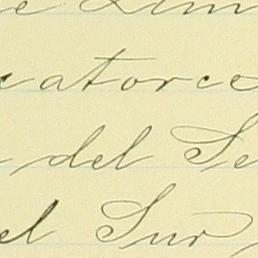 catorce
del Se
el Sur